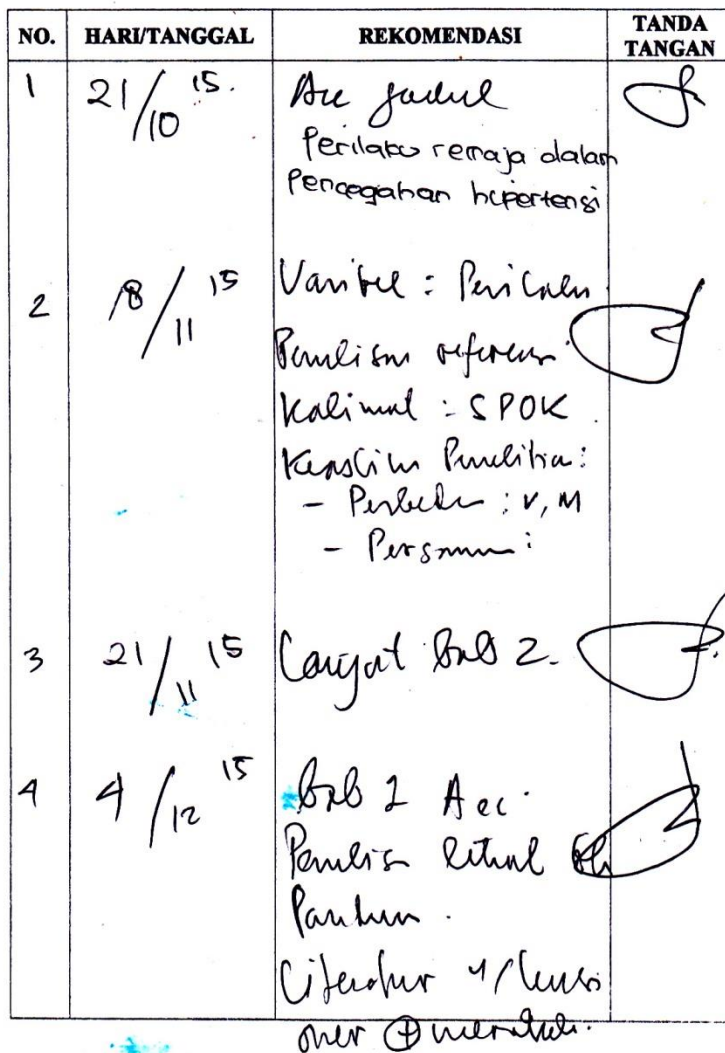 NO. HARI/TANGGAL REKOMENDASI TANDA TANGAN
1 21/10 15. Acc judul
Perilaku remaja dalam
Pencegahan hipertensi
2 8/11 15 Varibel : Perilaku
Penulisan referensi
Kalimat : SPOK
Keaslian Penelitian :
- Perbedaan : V, M
- Persamaan :
3 21/11 15 Lanjut Bab 2.
4 4/12 15 Bab 1 Acc.
Penulisan
Panduan.
Literatur